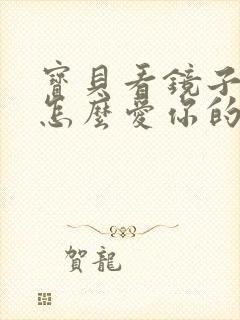 寶貝看鏡子
怎麼愛你的
賀龍